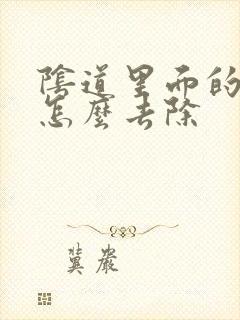 陰道里面的
怎麼去除
冀巖